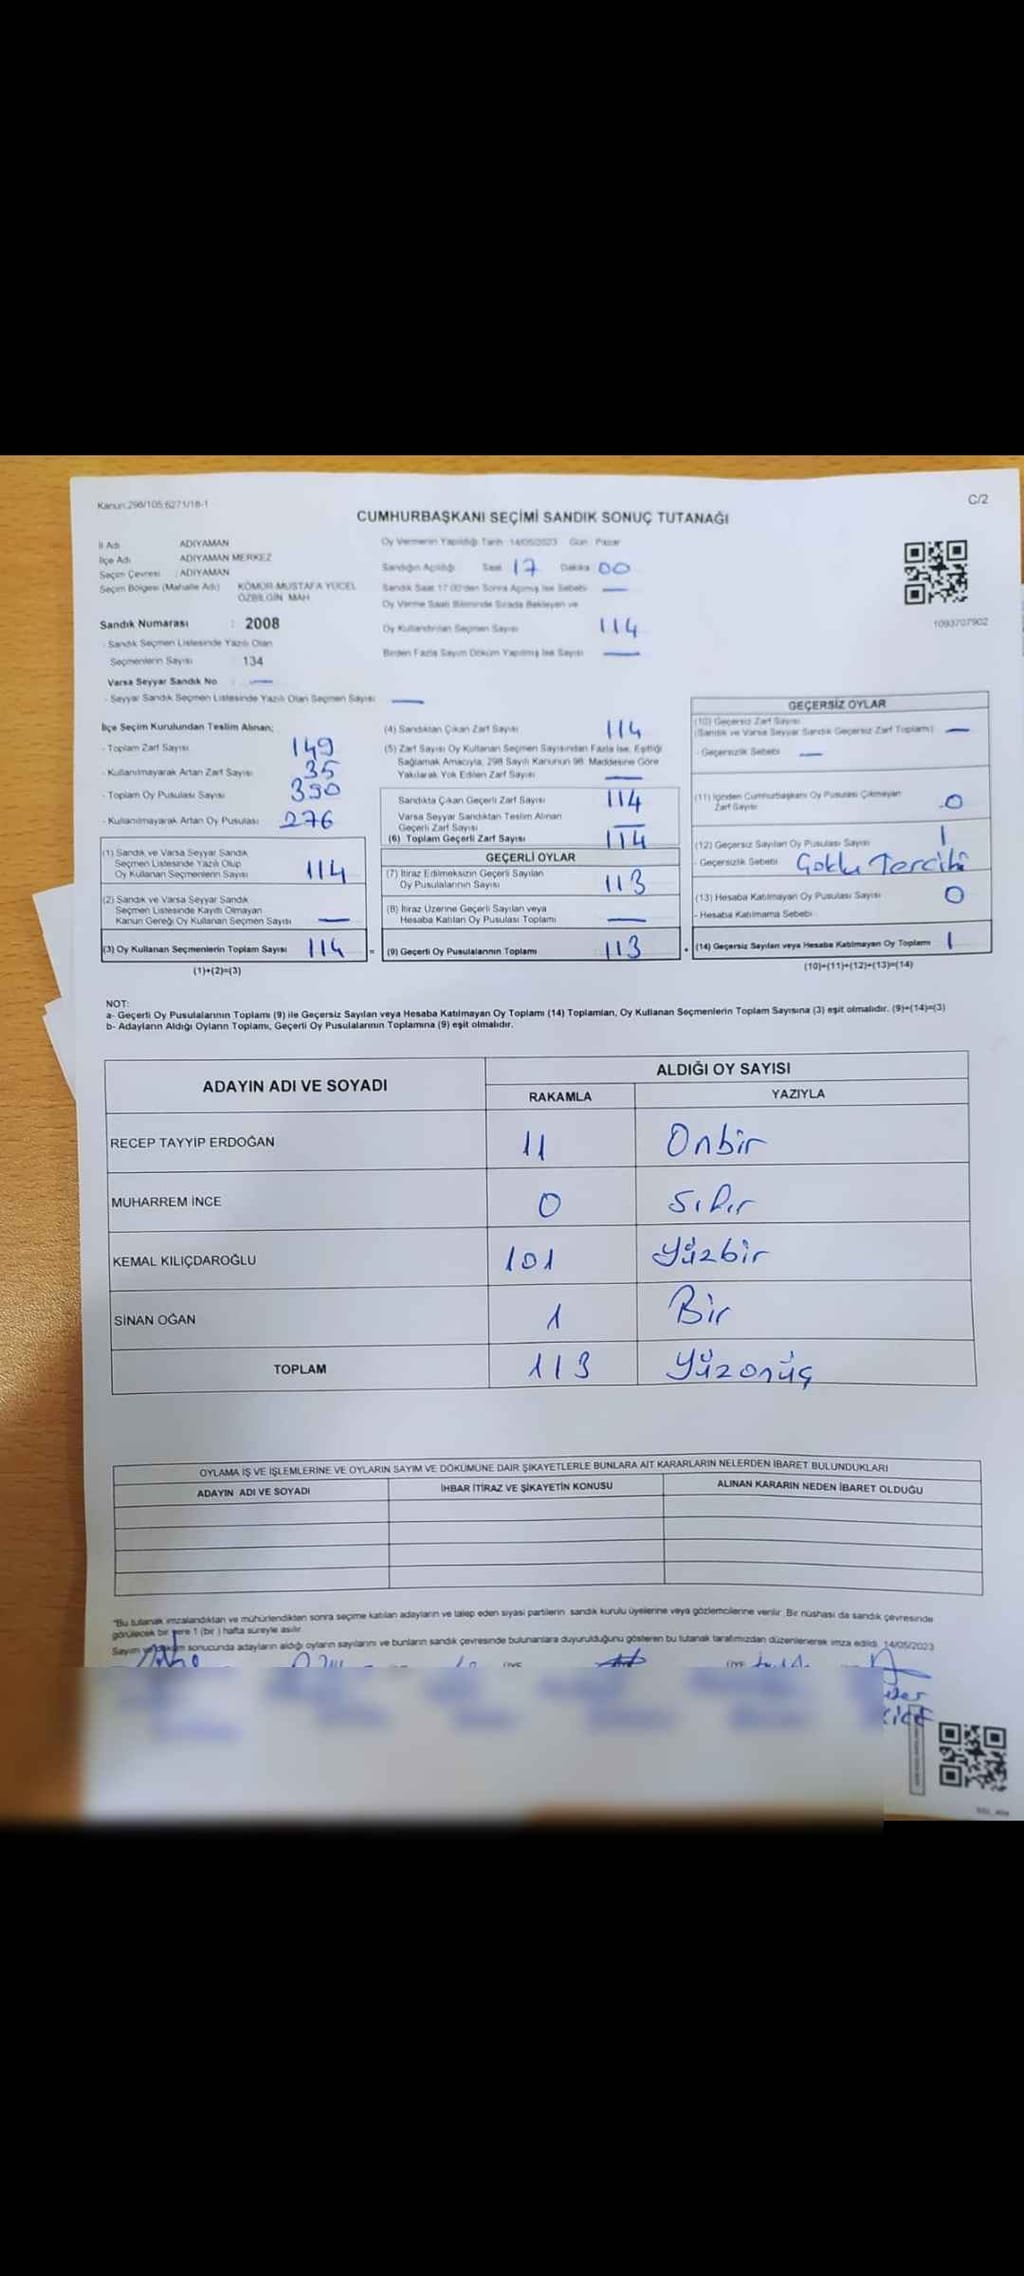 Kanun:298/105;6271/18-1
C/2
CUMHURBAŞKANI SEÇİMİ SANDIK SONUÇ TUTANAĞI
İl Adı ADIYAMAN
İlçe Adı ADIYAMAN MERKEZ
Seçim Çevresi : ADIYAMAN
Seçim Bölgesi (Mahalle Adı) KÖMÜR-MUSTAFA YÜCEL
ÖZBİLGİN MAH
Sandık Numarası : 2008
- Sandık Seçmen Listesinde Yazılı Olan
Seçmenlerin Sayısı 134
Varsa Seyyar Sandık No —
- Seyyar Sandık Seçmen Listesinde Yazılı Olan Seçmen Sayısı —
Oy Vermenin Yapıldığı Tarih : 14/05/2023 Gün : Pazar
Sandığın Açıldığı Saat 17 Dakika 00
Sandık Saat 17:00'den Sonra Açılmış İse Sebebi —
Oy Verme Saati Bitiminde Sırada Bekleyen ve
Oy Kullandırılan Seçmen Sayısı 114
Birden Fazla Sayım Döküm Yapılmış İse Sayısı —
1093707902
İlçe Seçim Kurulundan Teslim Alınan;
- Toplam Zarf Sayısı 149
- Kullanılmayarak Artan Zarf Sayısı 35
- Toplam Oy Pusulası Sayısı 390
- Kullanılmayarak Artan Oy Pusulası 276
(1) Sandık ve Varsa Seyyar Sandık
Seçmen Listesinde Yazılı Olup
Oy Kullanan Seçmenlerin Sayısı 114
(2) Sandık ve Varsa Seyyar Sandık
Seçmen Listesinde Kayıtlı Olmayan
Kanun Gereği Oy Kullanan Seçmen Sayısı —
(3) Oy Kullanan Seçmenlerin Toplam Sayısı 114 =
(1)+(2)=(3)
(4) Sandıktan Çıkan Zarf Sayısı 114
(5) Zarf Sayısı Oy Kullanan Seçmen Sayısından Fazla İse, Eşitliği
Sağlamak Amacıyla, 298 Sayılı Kanunun 98. Maddesine Göre
Yakılarak Yok Edilen Zarf Sayısı —
Sandıkta Çıkan Geçerli Zarf Sayısı 114
Varsa Seyyar Sandıktan Teslim Alınan
Geçerli Zarf Sayısı —
(6) Toplam Geçerli Zarf Sayısı 114
GEÇERLİ OYLAR
(7) İtiraz Edilmeksizin Geçerli Sayılan
Oy Pusulalarının Sayısı 113
(8) İtiraz Üzerine Geçerli Sayılan veya
Hesaba Katılan Oy Pusulası Toplamı —
(9) Geçerli Oy Pusulalarının Toplamı 113 +
GEÇERSİZ OYLAR
(10) Geçersiz Zarf Sayısı
(Sandık ve Varsa Seyyar Sandık Geçersiz Zarf Toplamı) —
- Geçersizlik Sebebi —
(11) İçinden Cumhurbaşkanı Oy Pusulası Çıkmayan
Zarf Sayısı 0
(12) Geçersiz Sayılan Oy Pusulası Sayısı 1
- Geçersizlik Sebebi Çoklu Tercihi
(13) Hesaba Katılmayan Oy Pusulası Sayısı 0
- Hesaba Katılmama Sebebi
(14) Geçersiz Sayılan veya Hesaba Katılmayan Oy Toplamı 1
(10)+(11)+(12)+(13)=(14)
NOT:
a- Geçerli Oy Pusulalarının Toplamı (9) ile Geçersiz Sayılan veya Hesaba Katılmayan Oy Toplamı (14) Toplamları, Oy Kullanan Seçmenlerin Toplam Sayısına (3) eşit olmalıdır. (9)+(14)=(3)
b- Adayların Aldığı Oyların Toplamı, Geçerli Oy Pusulalarının Toplamına (9) eşit olmalıdır.
ADAYIN ADI VE SOYADI
ALDIĞI OY SAYISI
RAKAMLA YAZIYLA
RECEP TAYYİP ERDOĞAN 11 Onbir
MUHARREM İNCE 0 Sıfır
KEMAL KILIÇDAROĞLU 101 Yüzbir
SİNAN OĞAN 1 Bir
TOPLAM 113 Yüzonüç
OYLAMA İŞ VE İŞLEMLERİNE VE OYLARIN SAYIM VE DÖKÜMÜNE DAİR ŞİKAYETLERLE BUNLARA AİT KARARLARIN NELERDEN İBARET BULUNDUKLARI
ADAYIN ADI VE SOYADI İHBAR İTİRAZ VE ŞİKAYETİN KONUSU ALINAN KARARIN NEDEN İBARET OLDUĞU
"Bu tutanak imzalandıktan ve mühürlendikten sonra seçime katılan adayların ve talep eden siyasi partilerin sandık kurulu üyelerine veya gözlemcilerine verilir. Bir nüshası da sandık çevresinde
görülecek bir yere 1 (bir) hafta süreyle asılır.
Sayım ve döküm sonucunda adayların aldığı oyların sayılarını ve bunların sandık çevresinde bulunanlara duyurulduğunu gösteren bu tutanak tarafımızdan düzenlenerek imza edildi. 14/05/2023